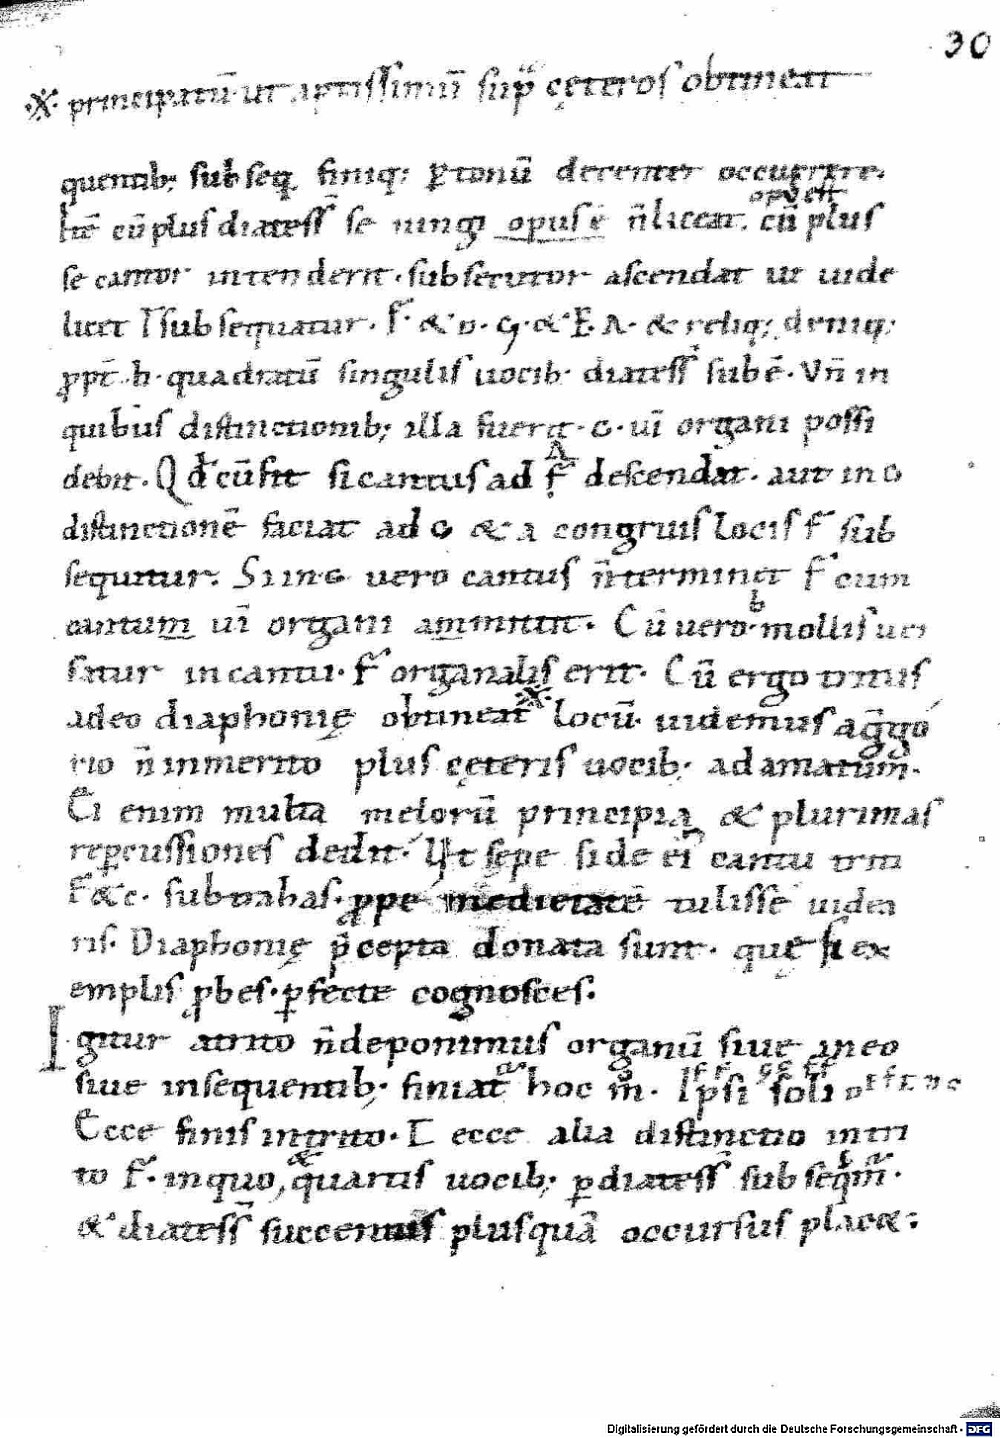 30
·X· principatū· ut aptissimū sup̄ cęteros obtineat
quentib; subseq̨ finiq; p̱tonū decenter occurrere.
Itē cū plus diatess̄ se iungi opus ē n̄ liceat. cū plus
opus est
se cantor intenderit· subsecutor ascendat ut uide
licet I subsequatur. F· & D. G· & E. A· & reliq; deniq;
p̱pt̄· b· quadratū singulis uocib· diatess̄ subē· Vn̄ in
quibus distinctionib; illa fuerit· G· uī organi possi
debit· Qd̄ cū fit si cantus ad F descendat· aut in G
A
distinctionē faciat ad G & A congruis locis F sub
sequitur. Si in G uero cantus n̄ terminet F cum
cantum uī organi ammittit. Cū uero b mollis uer
satur in cantu· F organalis erit· Cū ergo tritus
adeo diaphonię obtineat ·X· locū· uidemus a g̅go
rio n̄ inmerito plus cęteris uocib; adamatum.
Ei enim multa melorū principia & plurimas
repercussiones dedit· Ut sępe si de eī cantu triti
F & C· subtrahas· p̱pe medietatē tulisse uidea
ris· Diaphonię p̄cepta donata sunt· que si ex
emplis p̱bes· p̱fecte cognosces.
Igitur a trito n̄ deponimus organū siue in eo
siue insequentib; finiat hoc m̊· Ipsi soli
Ecce finis in trito· E ecce alia distinctio in tri
to F· in quo, & quartis uocib; p̱ diatess̄ subseq̄m̄·
& diatess̄ succentus plusquā occursus placet:
Digitalisierung gefördert durch die Deutsche Forschungsgemeinschaft - DFG